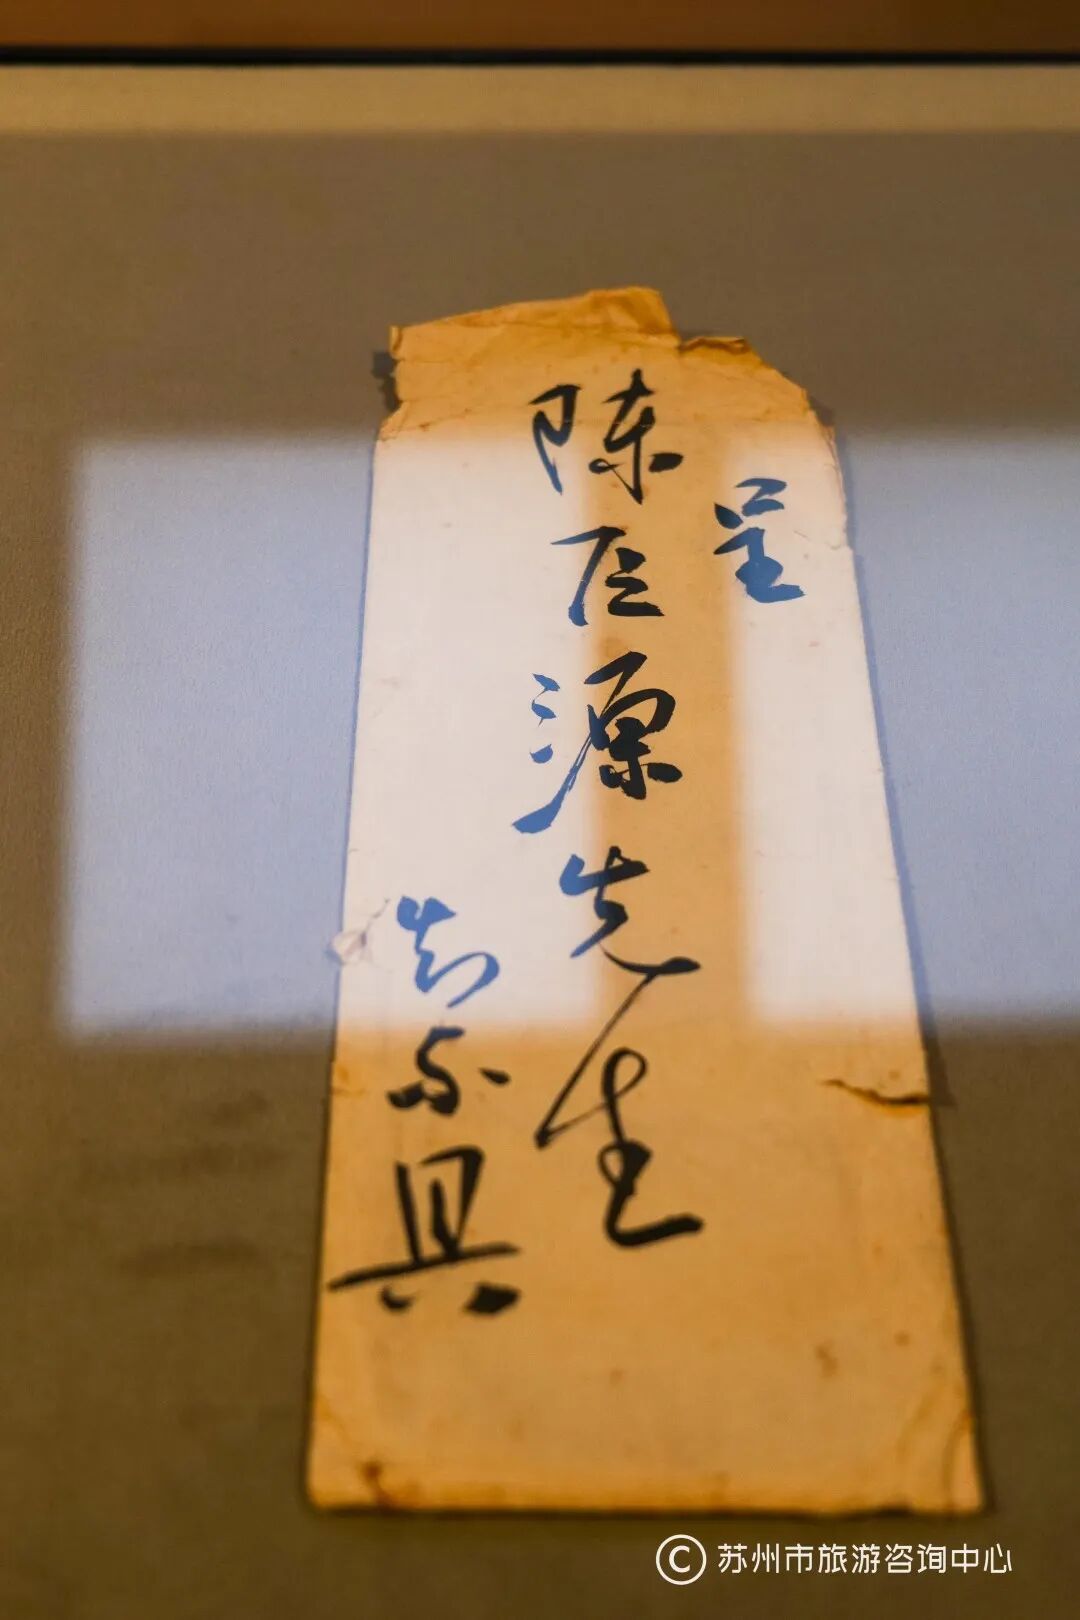 呈
陈巨源先生
具
苏州市旅游咨询中心